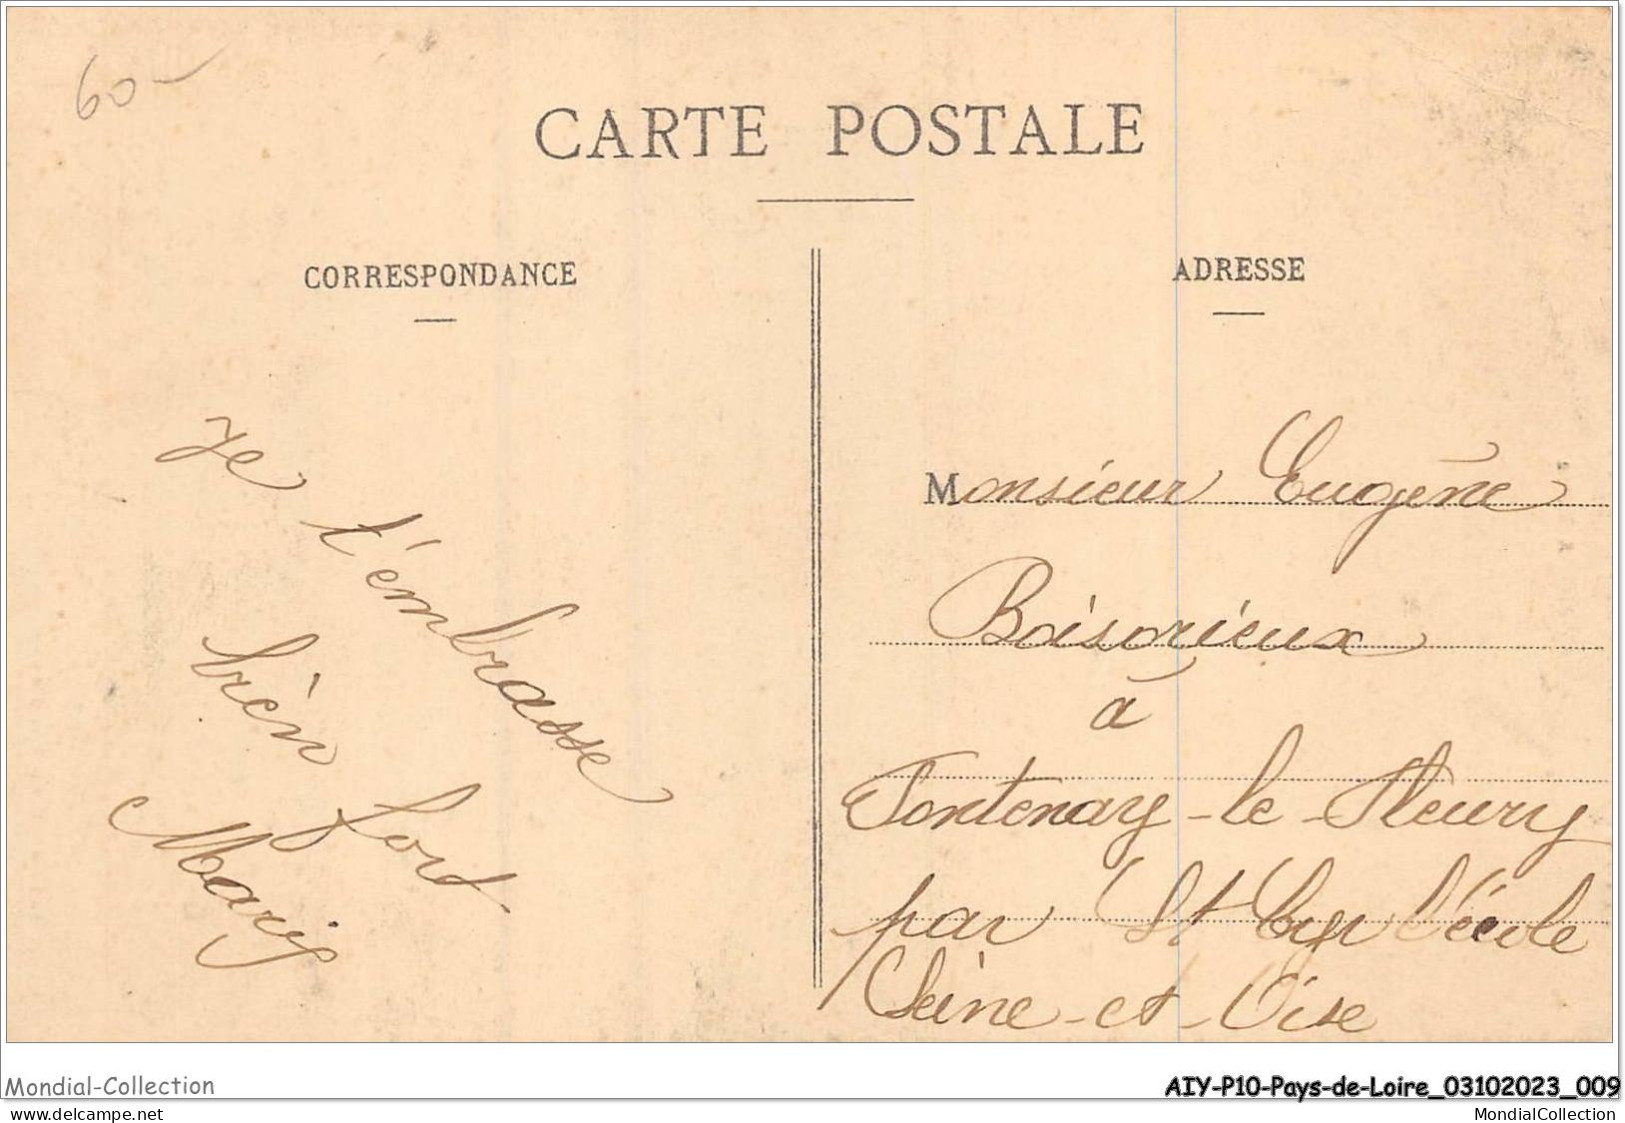 60-
CARTE POSTALE
CORRESPONDANCE
ADRESSE
Je
t'embrasse
bien
fort.
Marie
Monsieur Eugène
Boisorieux
à
Fontenay-le-Fleury
par St Cyr l'école
Seine-et-Oise
Mondial-Collection
AIY-P10-Pays-de-Loire_03102023_009
www.delcampe.net
MondialCollection